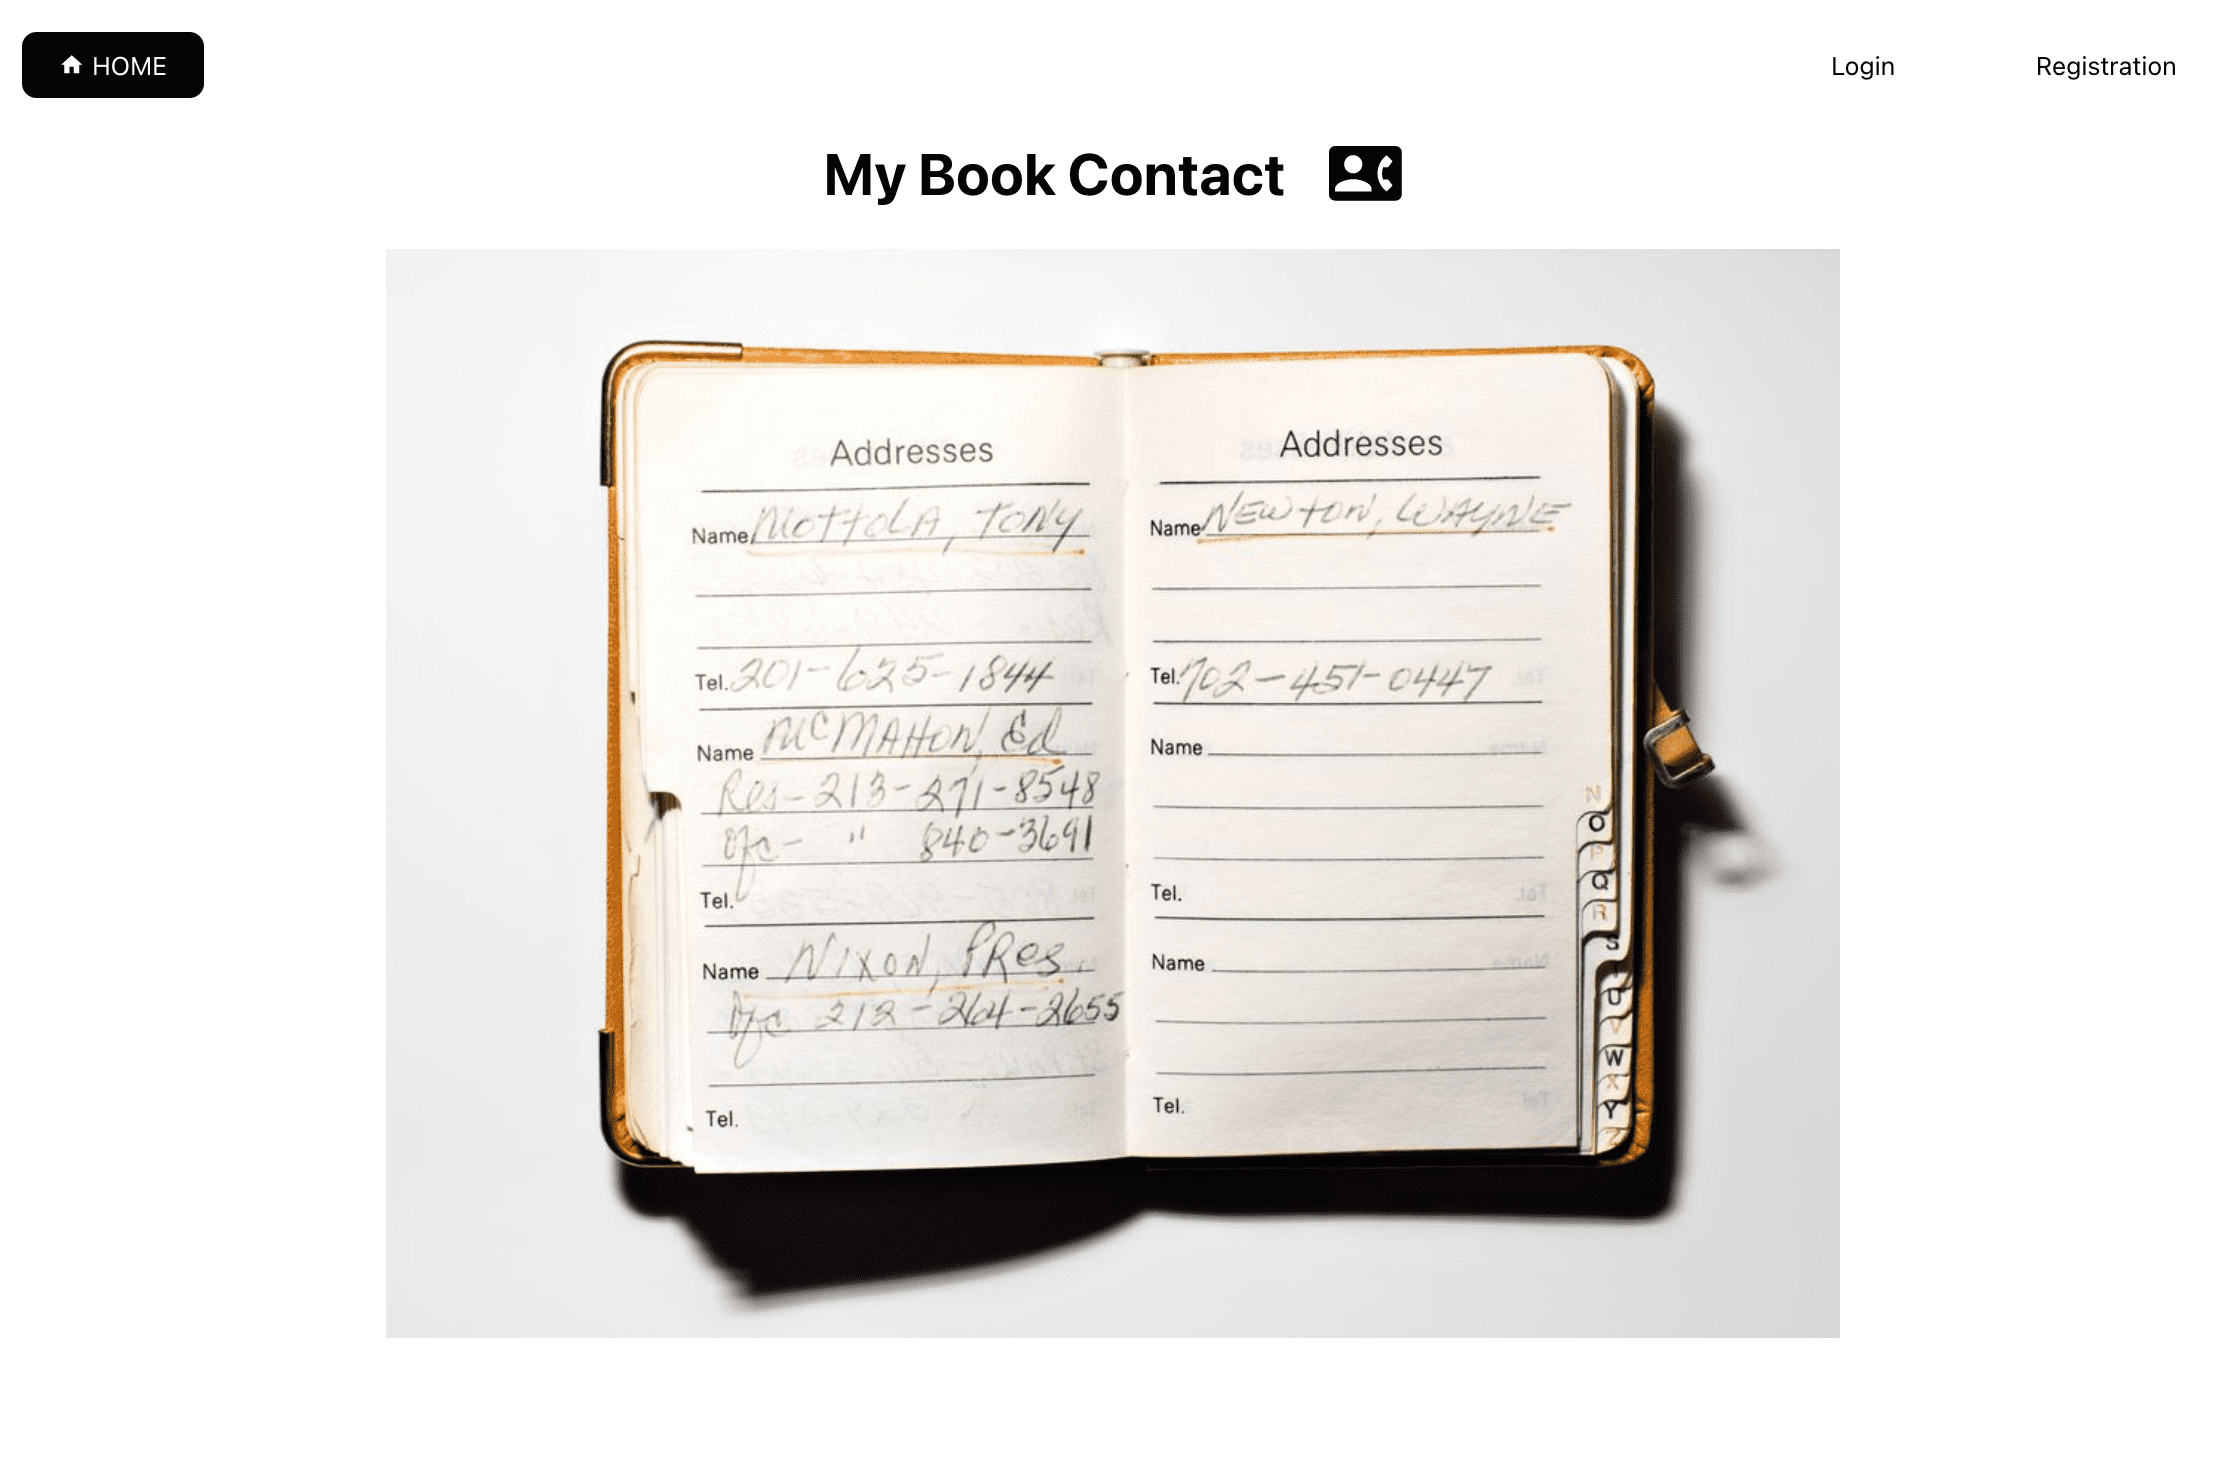 HOME
Login
Registration
My Book Contact
Addresses
Name Mottola, Tony
Tel. 201-625-1844
Name McMahon, Ed
Res- 213-271-8548
Ofc- " 840-3691
Tel.
Name Nixon, Pres.
Ofc 212-264-2655
Tel.
Addresses
Name Newton, Wayne
Tel. 702-451-0447
Name
Tel.
Name
Tel.
N
O
P
Q
R
S
U
V
W
X
Y
Z